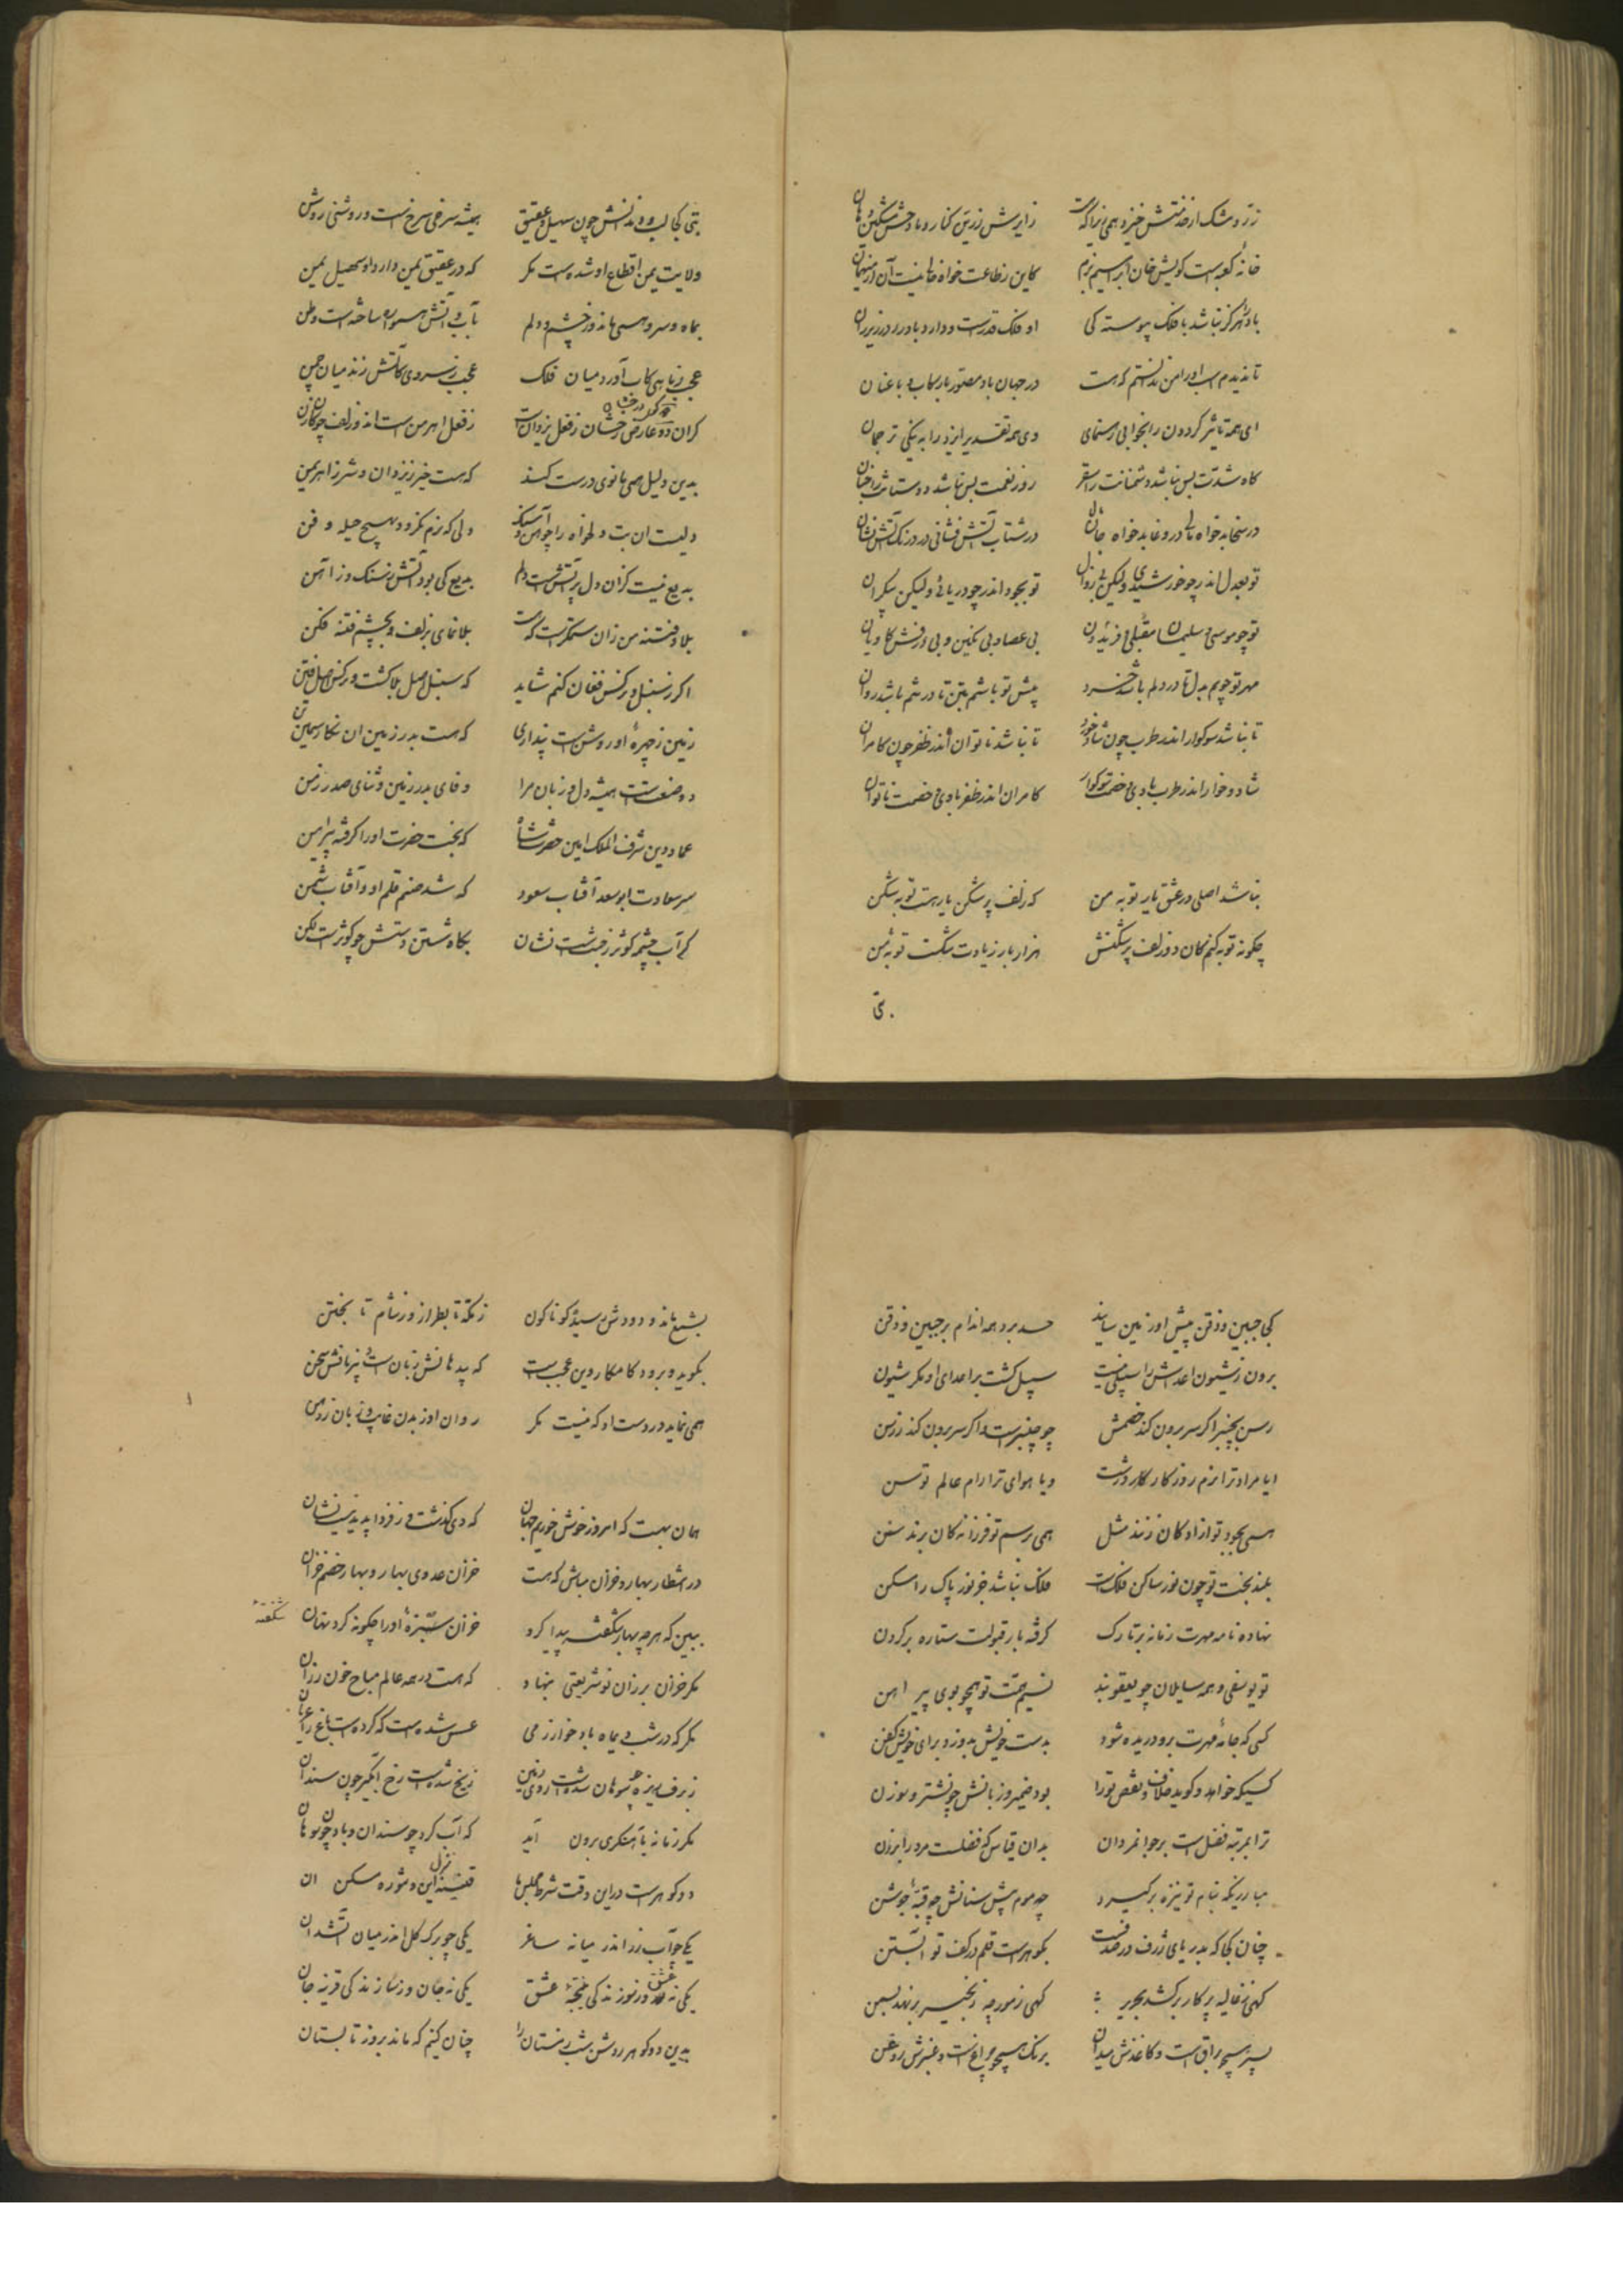 زر و مشک از خدمتش خیزد همی زیرا که هست زایرش زرین کنار و مادحش مشکین دهان
خانهٔ کعبه است کویش خان ابراهیم بزم کاین ز طاعت خواه خالی نیست آن از میهمان
باد هرگز نباشد با فلک پیوسته کی او فلک قدرست و دارد باد را در زیر ران
تا ندیدم اسب او را من ندانستم که هست در جهان باد مصور با رکاب و با عنان
ای همه تاثیر گردون را بخوابی رهنمای وی همه تقدیر ایزد را به نیکی ترجمان
گاه شدت بس نباشد دشمنانت را سقر روز نعمت بس نباشد دوستانت را جنان
در سخا بدخواه مالی در وغا بدخواه جان در شتاب آتش فشانی در درنک آتش نشان
تو بعدل اندر چو خورشیدی ولیکن بی زوال تو بجود اندر چو دریائی ولیکن بیکران
تو چو موسی و سلیمان مقبلی و افریدون بی عصا و بی نکین و بی درفش کاویان
مهر تو جویم بدل تا در دلم باشد خرد پیش تو باشم بتن تا در تنم باشد روان
تا نباشد سوکوار اندر طرب چون شادخوار تا نباشد ناتوان اندر ظفر چون کامران
شادخوار اندر طرب بادی و خصمت سوکوار کامران اندر ظفر بادی و خصمت ناتوان
نباشد اصلی در عشق یار توبه من که زلف پر شکن یار هست توبه شکن
چکونه توبه کنم کان دو زلف پر شکنش هزار بار زیادت شکست توبه من
بتی
بتی کجا لب و دندانش چون سهیل و عقیق همیشه سرخی سرخست و روشنی روشن
ولایت یمن اقطاع او شده است مکر که در عقیق یمن دارد او سهیل یمن
بماه و سرو همی ماند و ز چشم و دلم بآب و آتش همواره ساخته است وطن
عجب ز ماهی کاب آورد میان فلک عجب ز سروی کآتش زند میان چمن
کران دو عارض رخشان ز فعل یزدان است ز فعل اهرمن است آن دو زلف چوکان زن
بدین دلیل همی مانوی درست کند که هست خیر ز یزدان و شر ز اهریمن
دلیست آن بت دلخواه را چو آهن و سنک دلی که نرم نکردد بهیچ حیله و فن
بدیع نیست کزان دل پر آتش است دلم بدیع کی بود آتش ز سنک و ز آهن
بلا و فتنه من زان ستمکر است که هست بلا نمای بزلف و بچشم فتنه فکن
اکر ز سنبل و نرکس فغان کنم شاید که سنبل اصل بلا کشت و نرکس اصل فتن
زمین ز چهرهٔ او روشن است پنداری که هست بدر زمین آن نکار سیمین تن
دو صنعت است همیشه دل و زبان مرا وفای بدر زمین و ثنای صدر زمن
عماد دین شرف الملک امین حضرت شاه که بخت حضرت او را کرفته پیرامن
سر سعادت ابوسعد آفتاب سعود که شد صنم قلم او و آفتاب شمن
کر آب چشمه کوثر ز جنت است نشان بکاه شستن دستش چو کوثر است لکن
کجا جبین و ذقن پیش او زمین سایند حسد برد همه اندام بر جبین و ذقن
برون ز شیون اعداش را سبیلی نیست سبیل کشت بر اعدای او مکر شیون
رسن بچنبر اکر سر برون کند خصمش چو چنبر است و اکر سر برون کند ز رسن
ایا مراد ترا نرم روزکار درشت و یا هوای ترا رام عالم توسن
همی بجود تو آزادکان زنند مثل همی برسم تو فرزانه کان برند سنن
بلند بخت تو چون نور ساکن فلک است فلک نباشد جز نور پاک را مسکن
نهاده نامه مهرت زمانه بر تارک کرفته بار قبولت ستاره بر کردن
تو یوسفی و همه سایلان چو یعقوبند نسیم همت تو همچو بوی پیراهن
کسی که جامهٔ مهرت برو دریده شود بدست خویش بدوزد برای خویش کفن
کسیکه خواهد و کوید خلاف و نقص تورا بود ضمیر و زبانش چو نشتر و سوزن
ترا بمرتبه فضل است بر جوانمردان بدان قیاس که فضلست مرد را بر زن
مبارزیکه بنام تو نیزه برکیرد چه موم پیش سنانش چه قبهٔ جوشن
چنان کجا که بدریای ژرف در صدفست بکوهرست قلم در کف تو آبستن
کهی ز غالیه پرکار برکشد بحریر کهی ز مورچه زنجیر برنهد بسمن
بسیر همچو براق است و کاغذش میدان برنک همچو چراغ است و عنبرش روغن
بشمع ماند و دودش سیهٔ کوناکون ز مکه تا بطراز و ز شام تا بختن
بکوید و برود کامکار وین عجبیست که پید ها نش زبان است و پی زبانش سخن
همی نماید در دست او که نیست مکر روان او ز بدن غایب و زبان ز دهن
همان بهست که امروز خوش خوریم جهان که دی گذشت و ز فردا پدید نیست نشان
در انتظار بهار و خزان مباش که هست خزان عدوی بهار و بهار خصم خزان
ببین که هرچه بهار شکفته پیدا کرد خزان ستیزهٔ او را چکونه کرد نهان
شکفته
مکر خزان برزان نو شریعتی بنهاد که هست در همه عالم مباح خون رزان
مکر که در شب دیماه باد خوارزمی عسس شده است که کرده است باغ را عریان
ز برف ریزه چو سوهان شده است روی زمین ز یخ شده است رخ آبکیر چون سندان
مکر زمانه بآهنکری برون آید که آب کرد چو سندان و باد چون سوهان
دو کوهرست در این وقت شرط مجلس ها قنینه منزل این و تنوره مسکن آن
یکی چو آب زر اندر میانه ساغر یکی چو برک کل اندر میان آتشدان
یکی نه عشق و ز نور زندکی نتیجهٔ عشق یکی نه جان و ز نار زندکی قرینه جان
بدین دو کوهر روشن شب زمستان را چنان کنیم که ماند بروز تابستان